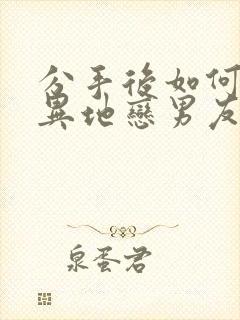 分手後如何
異地戀男友
泉蛋君